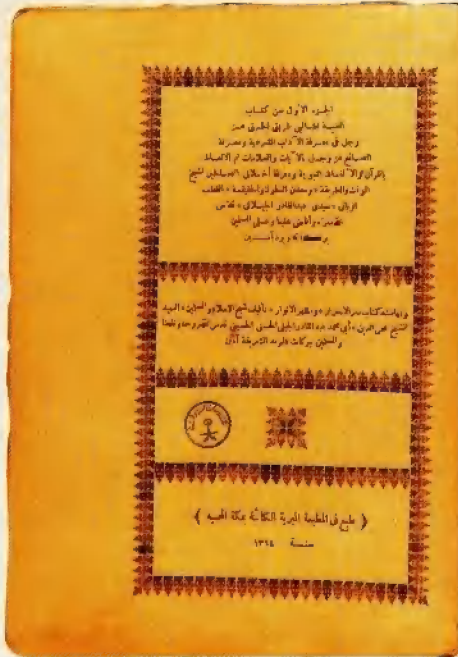 الجزء الأول من كتاب
الغنية لطالبي طريق الحق عز
وجل في معرفة الآداب الشرعية ومعرفة
الصانع عز وجل بالآيات والعلامات ثم الاتعاظ
بالقرآن والألفاظ النبوية ومعرفة أخلاق الصالحين لشيخ
الوقت والطريقة، ومعدن السلوك والحقيقة، القطب
الرباني، سيدي عبد القادر الجيلاني، قدس
سره، وأفاض علينا وعلى المسلمين
بركاته وبره آمين
وبهامشه كتاب سر الأسرار، ومظهر الأنوار، تأليف شيخ الإسلام والمسلمين، السيد
الشيخ محي الدين، أبي محمد عبد القادر الجيلي الحسني الحسيني قدس الله روحه ونفعنا
والمسلمين ببركات علومه الشريفة آمين
﴿ طبع في المطبعة الميرية الكائنة بمكة المحمية ﴾
سنة ١٣١٤